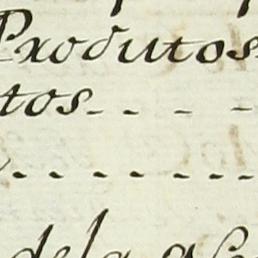 Produtos
tos - - - -
- - - - - - -
dela